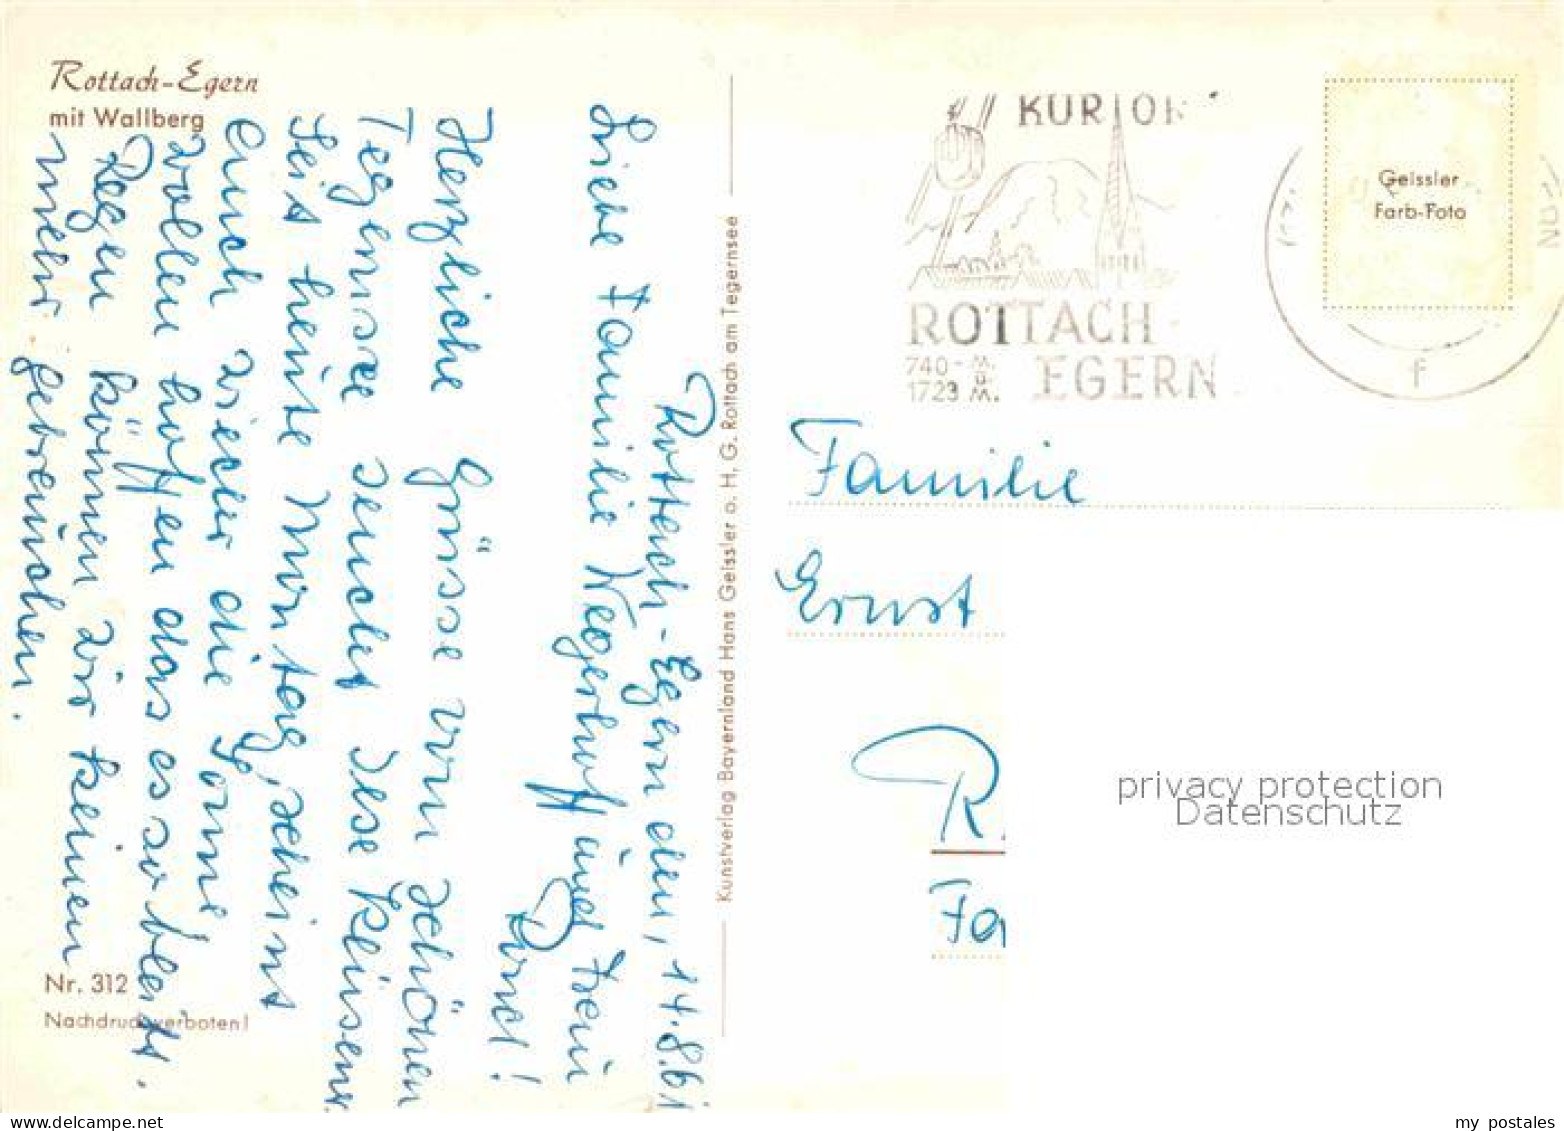 Rottach-Egern
mit Wallberg
Rottach-Egern den, 14.8.61
Liebe Familie Wegerhoff und Frau
Herzliche Grüsse vom schönen
Tegernsee sendet Ilse Klüsener.
Seit heute Montag, scheint
auch wieder die Sonne,
wollen hoffen das es so bleibt.
Regen können wir keinen
mehr gebrauchen.
Nr. 312
Nachdruck verboten!
Kunstverlag Bayernland Hans Geissler o. H. G. Rottach am Tegernsee
KURORT
ROTTACH-
EGERN
740-
1723
m.
ü.
M.
f
Geissler
Farb-Foto
Familie
Ernst
R.
Fa
privacy protection
Datenschutz
my postales
www.delcampe.net